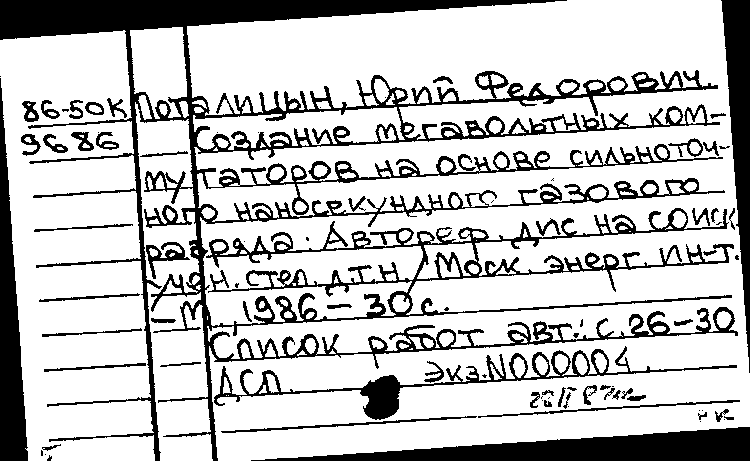 86-50К Поталицын, Юрий Федорович.
9686 Создание мегавольтных ком-
мутаторов на основе сильноточ-
ного наносекундного газового
разряда: Автореф. дис. на соиск.
учен. степ. д.т.н. / Моск. энерг. ин-т.
- М., 1986. - 30 с.
Список работ авт.: с. 26-30
ДСП. Экз. N000004.
нк